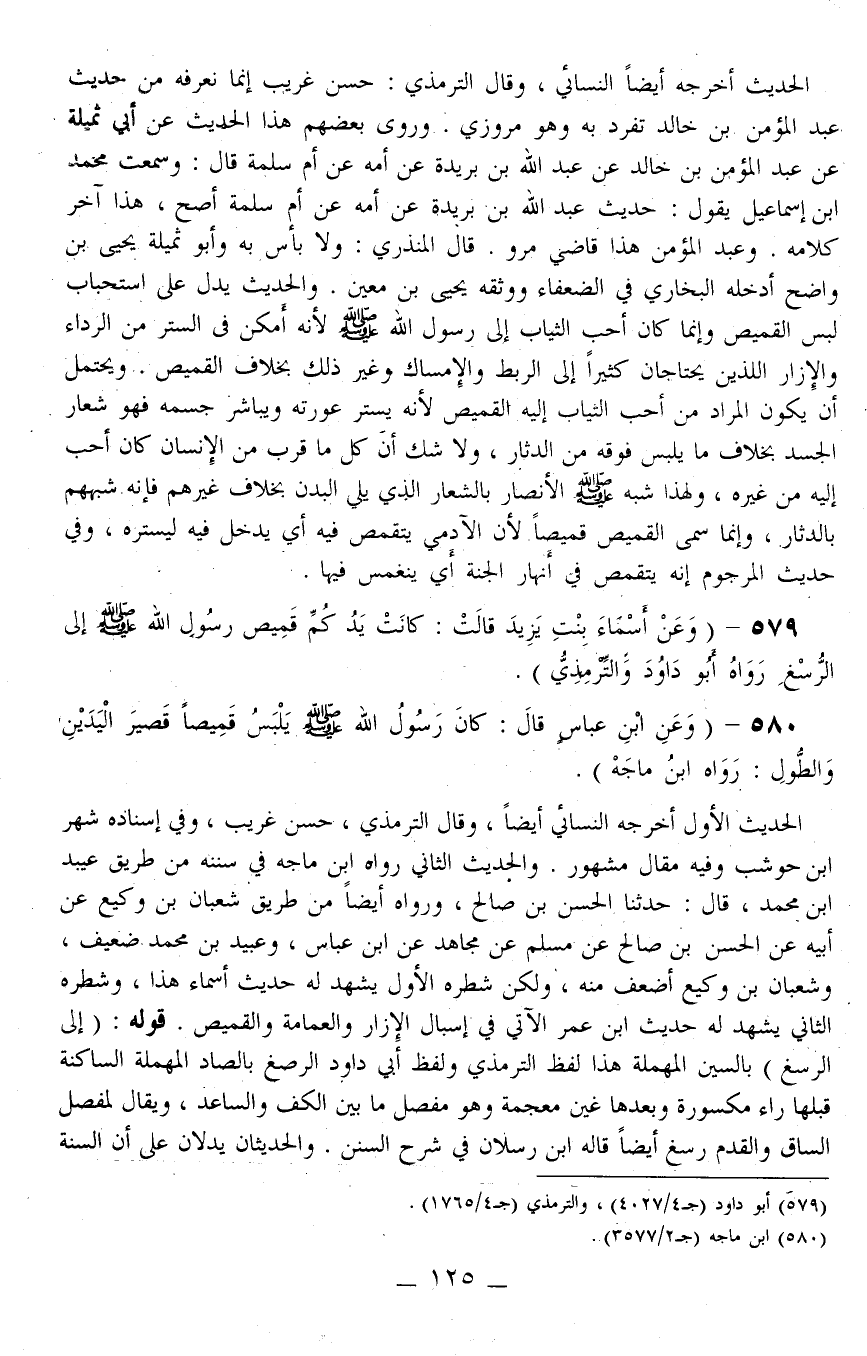 الحديث أخرجه أيضاً النسائي ، وقال الترمذي : حسن غريب إنما نعرفه من حديث
عبد المؤمن بن خالد تفرد به وهو مروزي . وروى بعضهم هذا الحديث عن أبي ثميلة
عن عبد المؤمن بن خالد عن عبد الله بن بريدة عن أمه عن أم سلمة قال : وسمعت محمد
ابن إسماعيل يقول : حديث عبد الله بن بريدة عن أمه عن أم سلمة أصح ، هذا آخر
كلامه . وعبد المؤمن هذا قاضي مرو . قال المنذري : ولا بأس به وأبو ثميلة يحيى بن
واضح أدخله البخاري في الضعفاء ووثقه يحيى بن معين . والحديث يدل على استحباب
لبس القميص وإنما كان أحب الثياب إلى رسول الله ﷺ لأنه أمكن فى الستر من الرداء
والإزار اللذين يحتاجان كثيراً إلى الربط والإمساك وغير ذلك بخلاف القميص . ويحتمل
أن يكون المراد من أحب الثياب إليه القميص لأنه يستر عورته ويباشر جسمه فهو شعار
الجسد بخلاف ما يلبس فوقه من الدثار ، ولا شك أن كل ما قرب من الإنسان كان أحب
إليه من غيره ، ولهذا شبه ﷺ الأنصار بالشعار الذي يلي البدن بخلاف غيرهم فإنه شبههم
بالدثار ، وإنما سمى القميص قميصاً لأن الآدمي يتقمص فيه أي يدخل فيه ليستره ، وفي
حديث المرجوم إنه يتقمص في أنهار الجنة أي ينغمس فيها .
٥٧٩ – ( وَعَنْ أَسْمَاءَ بِنْتِ يَزِيدَ قالَتْ : كانَتْ يَدُ كُمِّ قَمِيص رسُولِ الله ﷺ إلى
الرُّسْغِ رَوَاهُ أَبُو دَاوُدَ وَالتِّرْمِذِيُّ ) .
٥٨٠ – ( وَعَنِ ابْنِ عباسٍ قالَ : كانَ رَسُولُ الله ﷺ يَلْبَسُ قَمِيصاً قَصِيرَ الْيَدَيْنِ
وَالطُّولِ : رَوَاه ابنُ ماجَهْ ) .
الحديث الأول أخرجه النسائي أيضاً ، وقال الترمذي ، حسن غريب ، وفي إسناده شهر
ابن حوشب وفيه مقال مشهور . والحديث الثاني رواه ابن ماجه في سننه من طريق عبيد
ابن محمد ، قال : حدثنا الحسن بن صالح ، ورواه أيضاً من طريق شعبان بن وكيع عن
أبيه عن الحسن بن صالح عن مسلم عن مجاهد عن ابن عباس ، وعبيد بن محمد ضعيف ،
وشعبان بن وكيع أضعف منه ، ولكن شطره الأول يشهد له حديث أسماء هذا ، وشطره
الثاني يشهد له حديث ابن عمر الآتي في إسبال الإزار والعمامة والقميص . قوله : ( إلى
الرسغ ) بالسين المهملة هذا لفظ الترمذي ولفظ أبي داود الرصغ بالصاد المهملة الساكنة
قبلها راء مكسورة وبعدها غين معجمة وهو مفصل ما بين الكف والساعد ، ويقال لمفصل
الساق والقدم رسغ أيضاً قاله ابن رسلان في شرح السنن . والحديثان يدلان على أن السنة
(٥٧٩) أبو داود (جـ٤/٤٠٢٧) ، والترمذي (جـ٤/١٧٦٥) .
(٥٨٠) ابن ماجه (جـ٢/٣٥٧٧) .
– ١٢٥ –